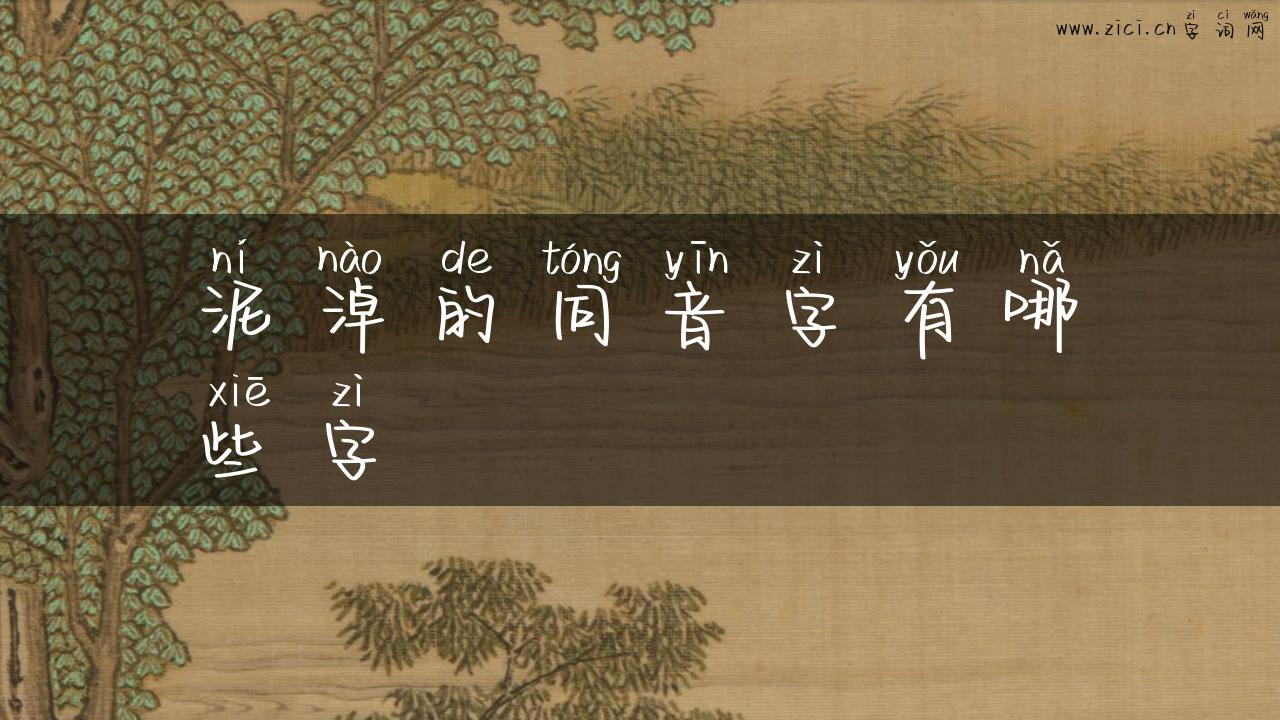 zì cí wǎng
www.zici.cn字词网
ní nào de tóng yīn zì yǒu nǎ
泥淖的同音字有哪
xiē zì
些字